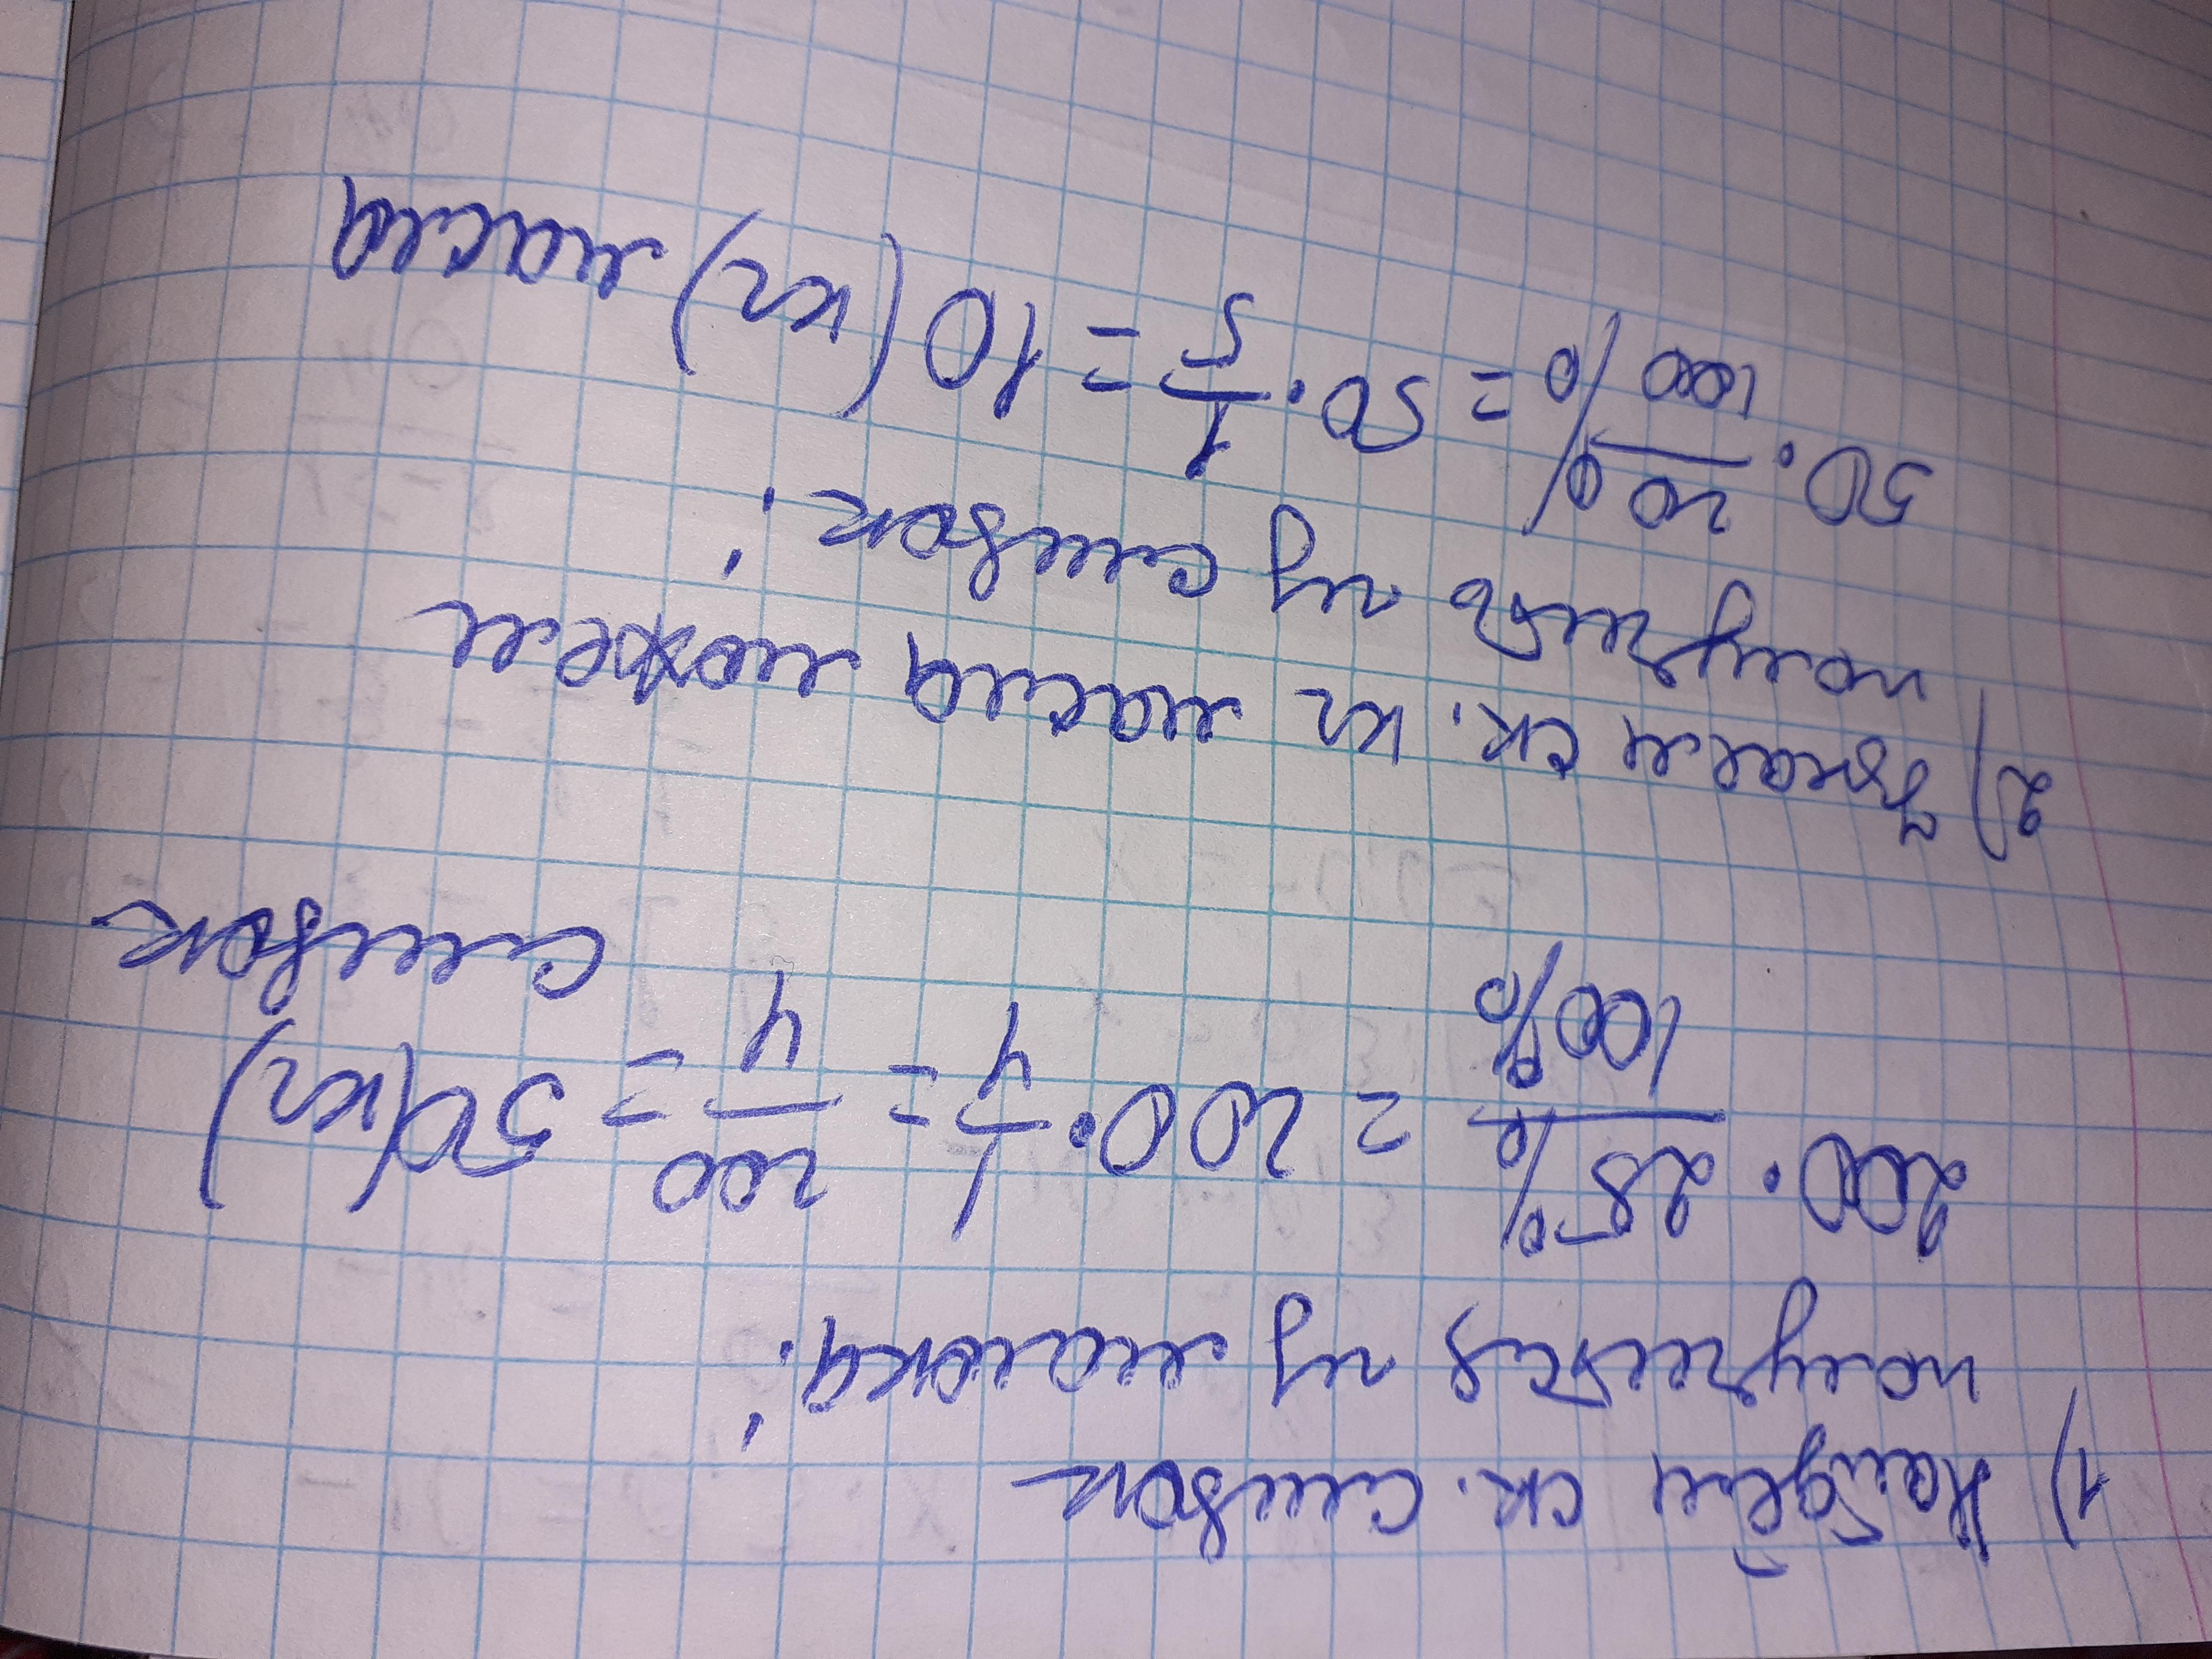 1) Найдём ск. сливок
получится из молока:
200 · 25% / 100% = 200 · 1/4 = 200/4 = 50(кг)
сливок
2) Узнаем ск. кг масла можем
получить из сливок:
50 · 20% / 100% = 50 · 1/5 = 10(кг) масла